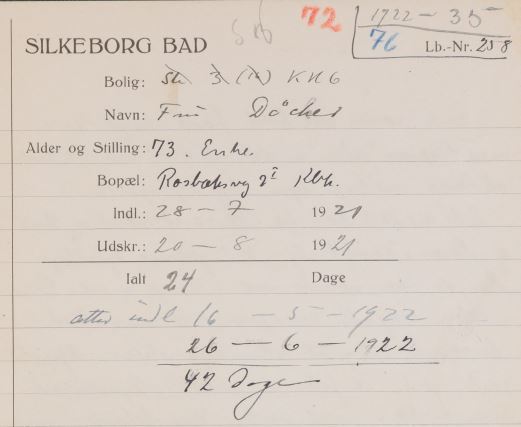 72
1922 - 35
76 Lb.-Nr. 258
SILKEBORG BAD
Bolig: St. 3 (14) KK6
Navn: Fru Döcker
Alder og Stilling: 73. Enke.
Bopæl: Rosbæksvej 2 I Kbh.
Indl.: 28 - 7 1921
Udskr.: 20 - 8 1921
Ialt 24 Dage
atter indl 16 - 5 - 1922
26 - 6 - 1922
42 Dage